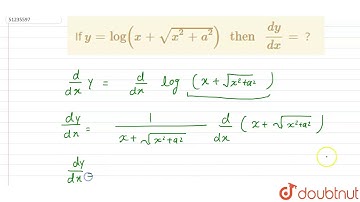 51235597
If y = log(x + √(x² + a²)) then dy/dx = ?
d/dx y = d/dx log (x + √(x²+a²))
dy/dx = 1/(x + √(x²+a²)) d/dx (x + √(x²+a²))
dy/dx =
doubtnut